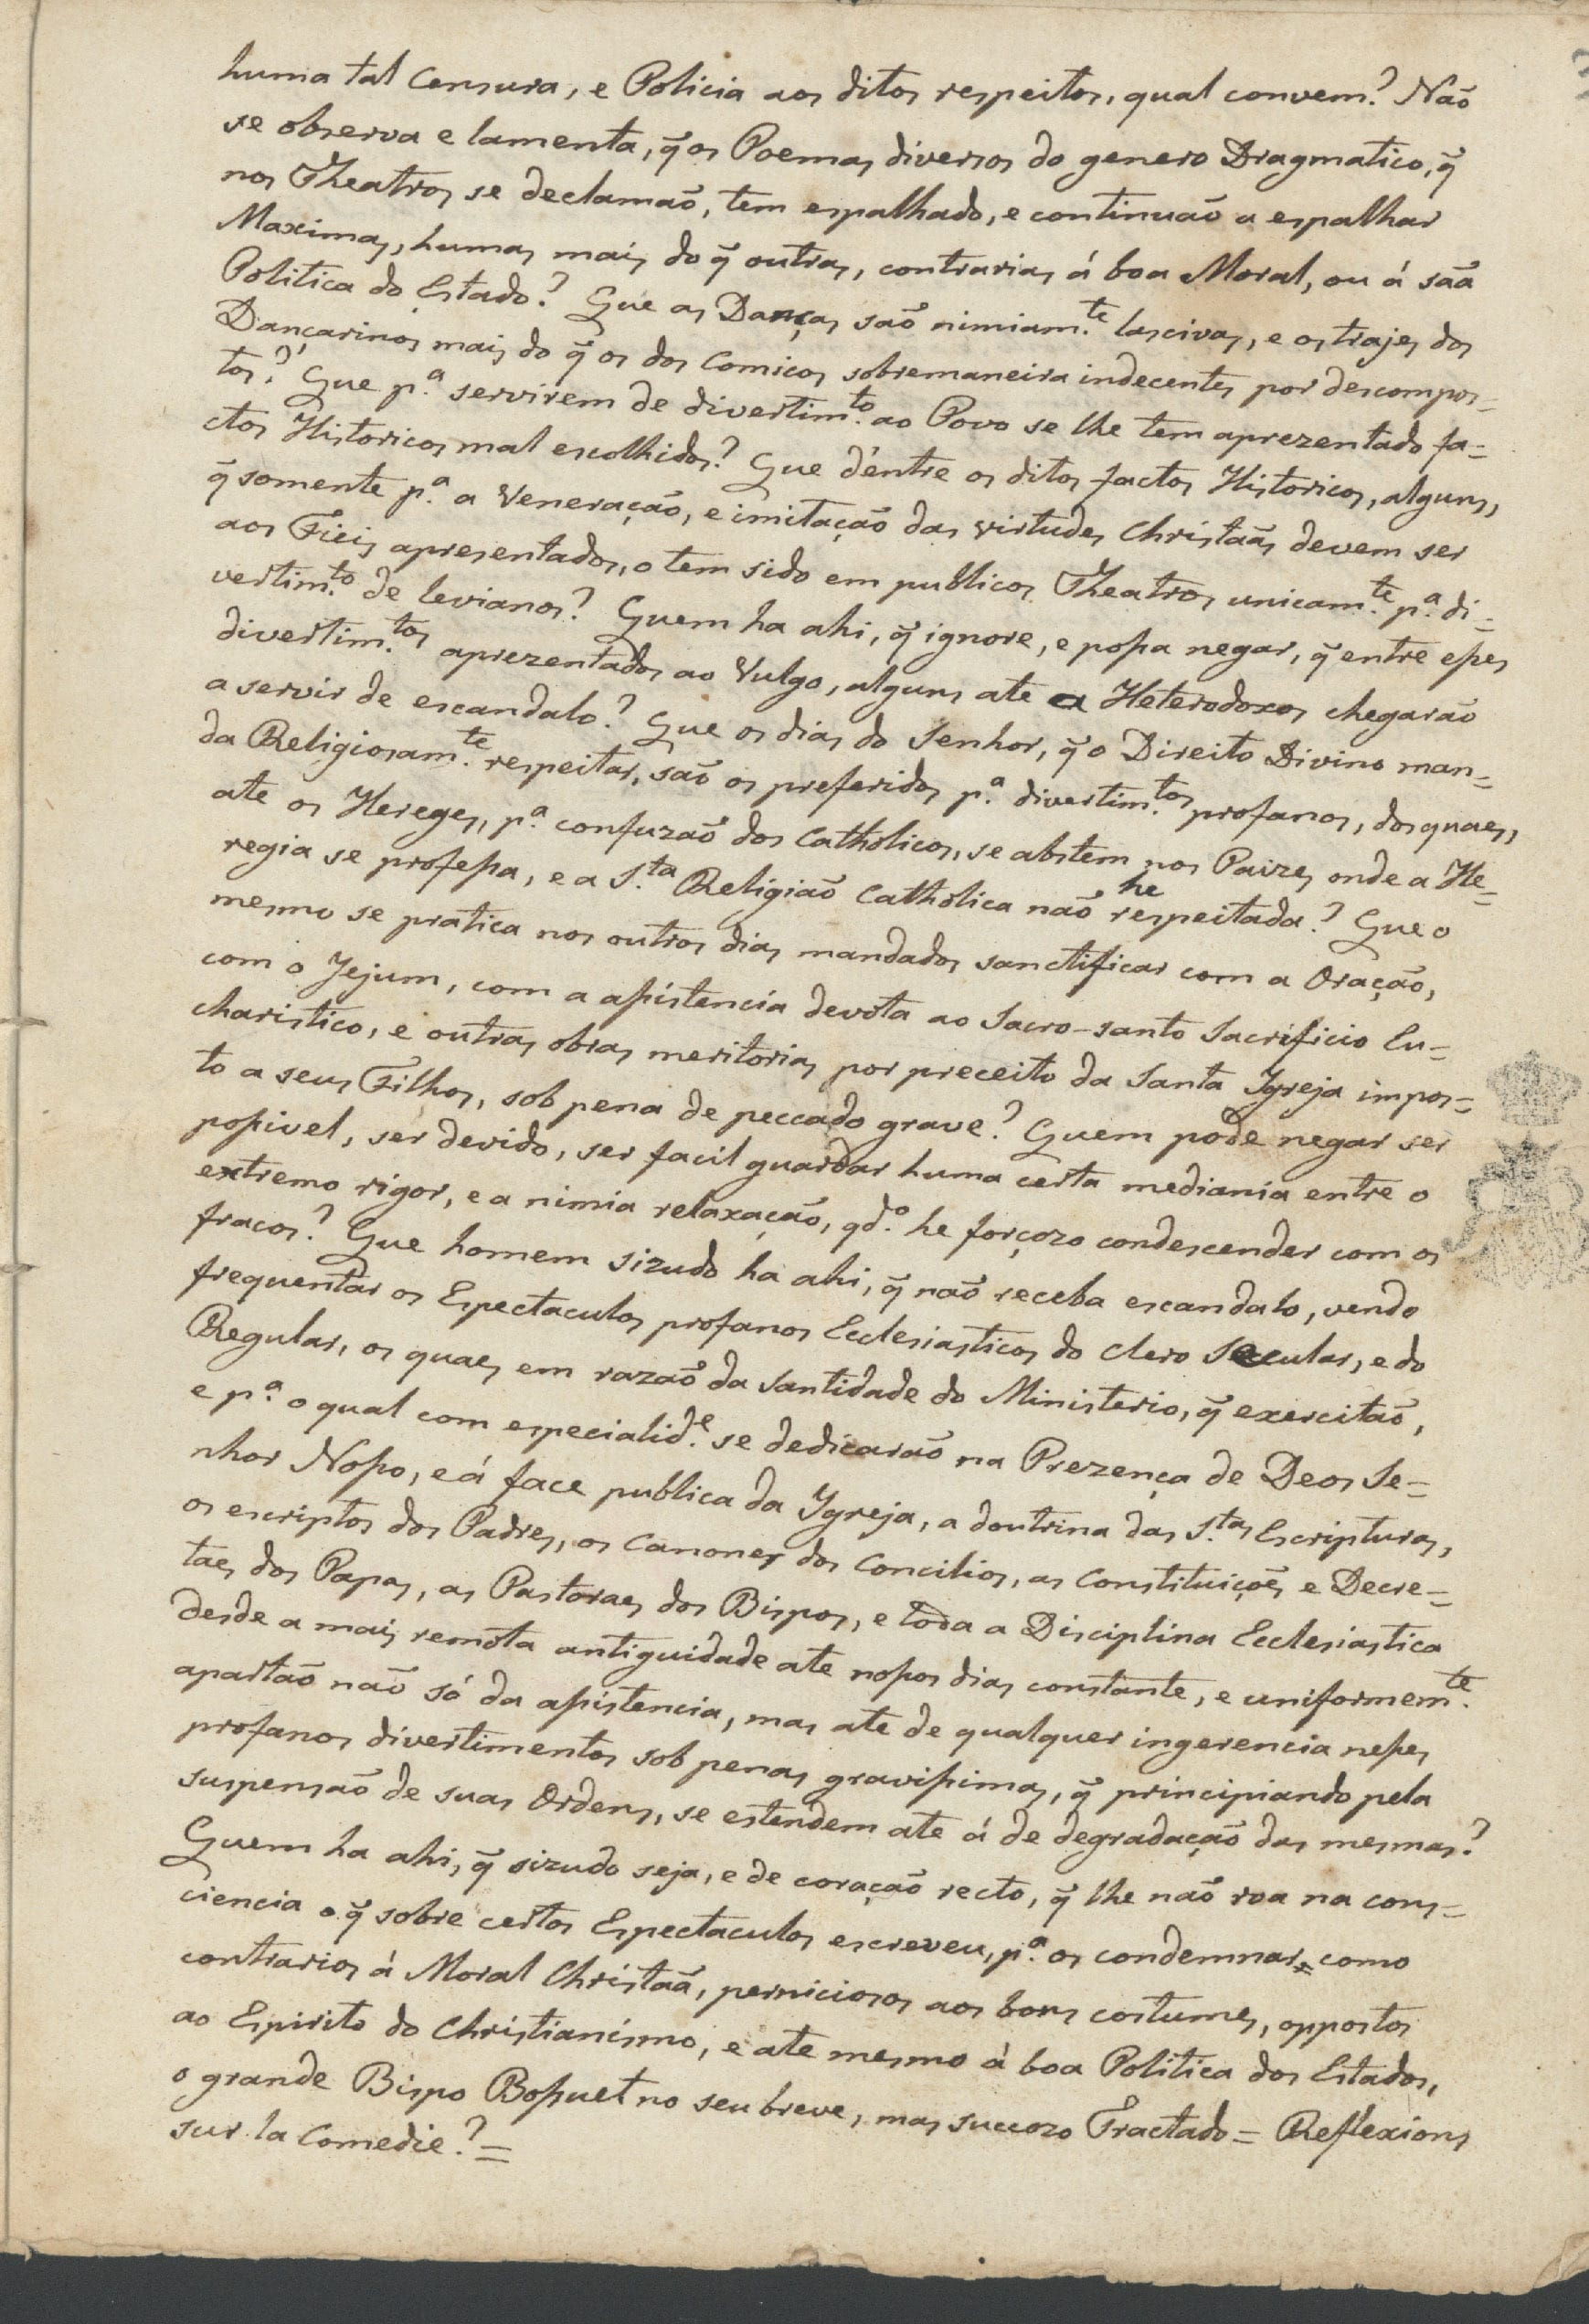 huma tal Censura, e Policia aos ditos respeitos, qual convem? Não
se observa e lamenta, q̃ os Poemas diversos do genero Dragmatico, q̃
nos Theatros se declamaõ, tem espalhado, e continuaõ a espalhar
Maximas, humas mais do q̃ outras, contrarias á boa Moral, ou á sãa
Politica do Estado? Que as Danças saõ nimiam.te lascivas, e os trajes dos
Dançarinos mais do q̃ os dos Comicos sobremaneira indecentes por descompos=
tos? Que p.a servirem de divertim.to ao Povo se lhe tem aprezentado fa=
ctos Historicos mal escolhidos? Que d'entre os ditos factos Historicos, alguns,
q̃ somente p.a a Veneração, e imitação das virtudes Christaãs devem ser
aos Fieis apresentados, o tem sido em publicos Theatros unicam.te p.a di=
vertim.to de levianos? Quem ha ahi, q̃ ignore, e possa negar, q̃ entre esses
divertim.tos aprezentados ao Vulgo, alguns ate a Heterodoxos chegaraõ
a servir de escandalo? Que os dias do Senhor, q̃ o Direito Divino man=
da Religiosam.te respeitar, saõ os preferidos p.a divertim.tos profanos, dos quaes,
ate os Hereges, p.a confuzaõ dos Catholicos, se abstem nos Paizes onde a He=
regia se professa, e a S.ta Religiaõ Catholica naõ he respeitada? Que o
mesmo se pratica nos outros dias mandados sanctificar com a Oração,
com o Jejum, com a assistencia devota ao Sacro-santo Sacrificio Eu=
charistico, e outras obras meritorias por preceito da Santa Igreja impos=
to a seus Filhos, sob pena de peccado grave? Quem pode negar ser
possivel, ser devido, ser facil guardar huma certa mediania entre o
extremo rigor, e a nimia relaxação, qd.o he forçozo condescender com os
fracos? Que homem sizudo ha ahi, q̃ naõ receba escandalo, vendo
frequentar os Espectaculos profanos Ecclesiasticos do Clero Secular, e do
Regular, os quaes em razaõ da Santidade do Ministerio, q̃ exercitaõ,
e p.a o qual com especialid.e se dedicaraõ na Prezença de Deos Se=
nhor Nosso, e á face publica da Igreja, a doutrina das S.tas Escripturas,
os escriptos dos Padres, os Canones dos Concilios, as Constituiçoẽs e Decre=
taes dos Papas, as Pastoraes dos Bispos, e toda a Disciplina Ecclesiastica
desde a mais remota antiguidade ate nossos dias constante, e uniformem.te
apartaõ naõ só da assistencia, mas ate de qualquer ingerencia nesses
profanos divertimentos sob penas gravissimas, q̃ principiando pela
suspensaõ de suas Ordens, se estendem ate á de degradação das mesmas?
Quem ha ahi, q̃ sizudo seja, e de coração recto, q̃ lhe naõ roa na cons=
ciencia o q̃ sobre certos Espectaculos escreveu, p.a os condemnar, como
contrarios á Moral Christaã, perniciosos aos bons costumes, oppostos
ao Espirito do Christianismo, e ate mesmo á boa Politica dos Estados,
o grande Bispo Bossuet no seu breve, mas succozo Tractado = Reflexions
sur la Comedie? =